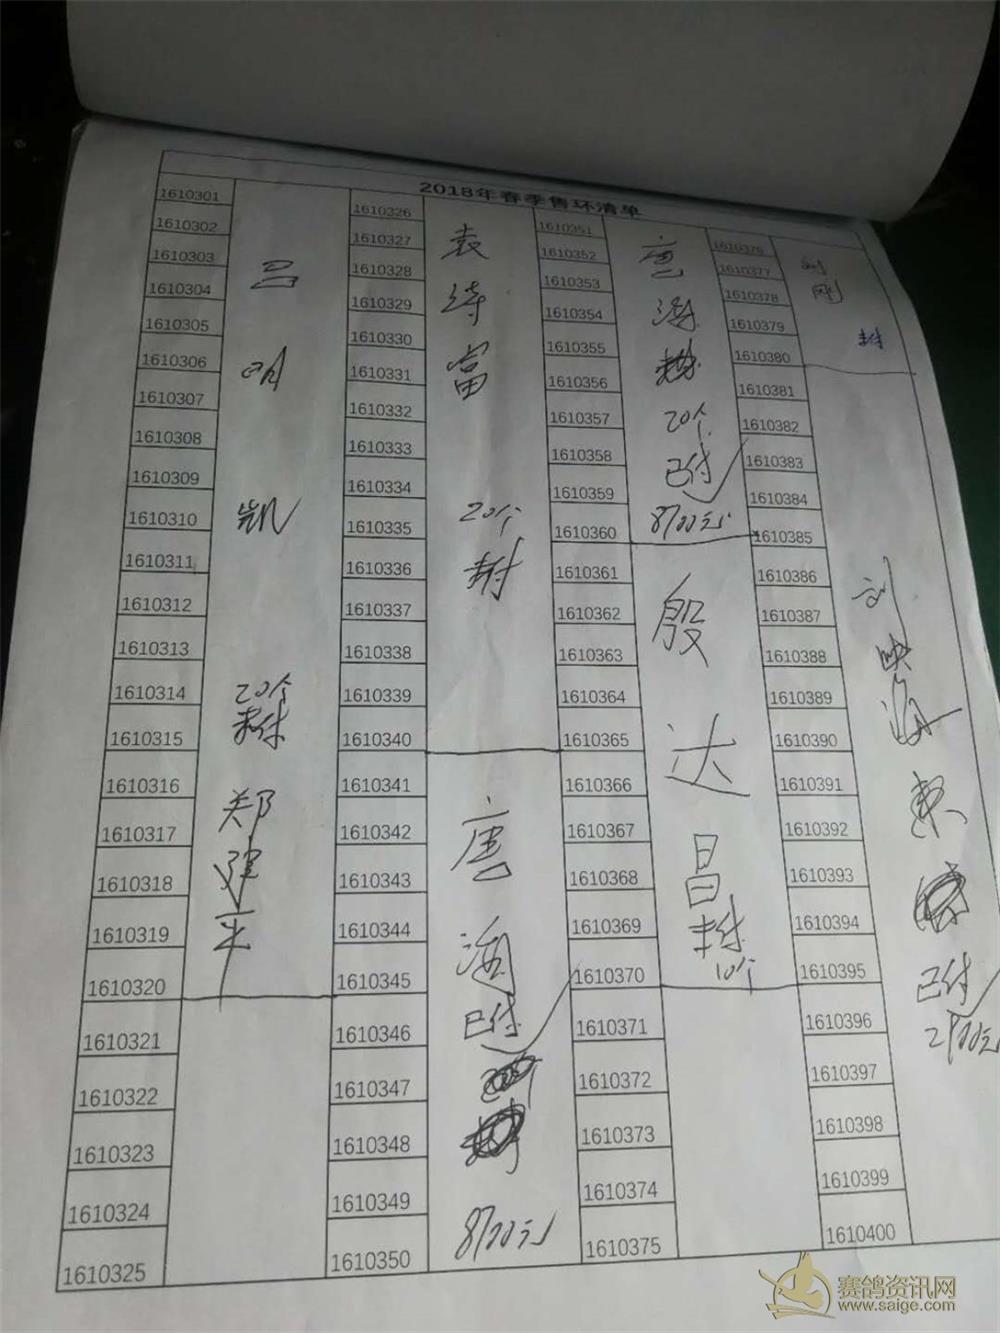 2018年春季售环清单
1610301
1610302
1610303
1610304
1610305
1610306
1610307
1610308
1610309
1610310
1610311
1610312
1610313
1610314
1610315
1610316
1610317
1610318
1610319
1610320
1610321
1610322
1610323
1610324
1610325
吕
明
凯
20个
未付
郑
建
平
1610326
1610327
1610328
1610329
1610330
1610331
1610332
1610333
1610334
1610335
1610336
1610337
1610338
1610339
1610340
1610341
1610342
1610343
1610344
1610345
1610346
1610347
1610348
1610349
1610350
袁
诗
富
20个
未付
唐
海
已付
8700元
1610351
1610352
1610353
1610354
1610355
1610356
1610357
1610358
1610359
1610360
1610361
1610362
1610363
1610364
1610365
1610366
1610367
1610368
1610369
1610370
1610371
1610372
1610373
1610374
1610375
唐
海
20个
已付
8700元
殷
达
昌
未付
10个
1610376
1610377
1610378
1610379
1610380
1610381
1610382
1610383
1610384
1610385
1610386
1610387
1610388
1610389
1610390
1610391
1610392
1610393
1610394
1610395
1610396
1610397
1610398
1610399
1610400
刘
刚
未付
刘
映
海
已付
赛鸽资讯网
www.saige.com